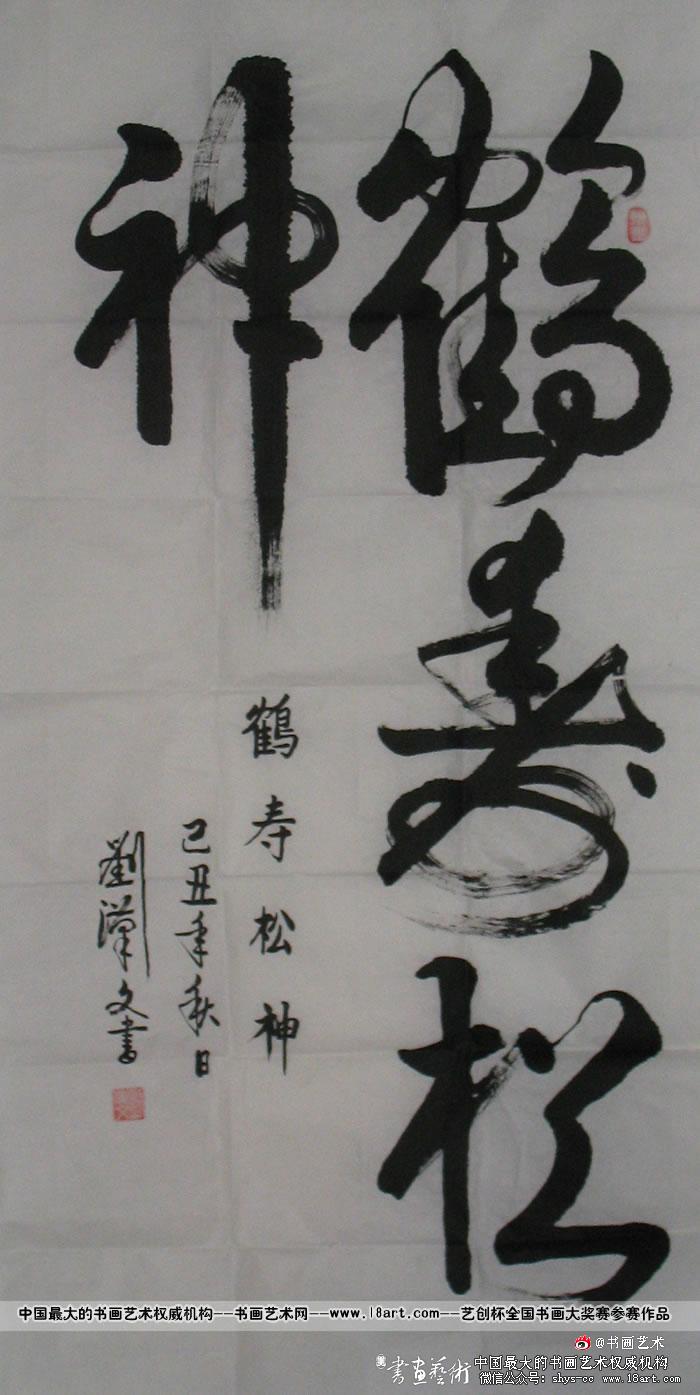 鶴壽松
神
鶴寿松神
己丑年秋日
劉漢文書
中国最大的书画艺术权威机构--书画艺术网--www.18art.com--艺创杯全国书画大奖赛参赛作品
@书画艺术
書画藝術 中国最大的书画艺术权威机构
微信公众号: shys-cc www.18art.com